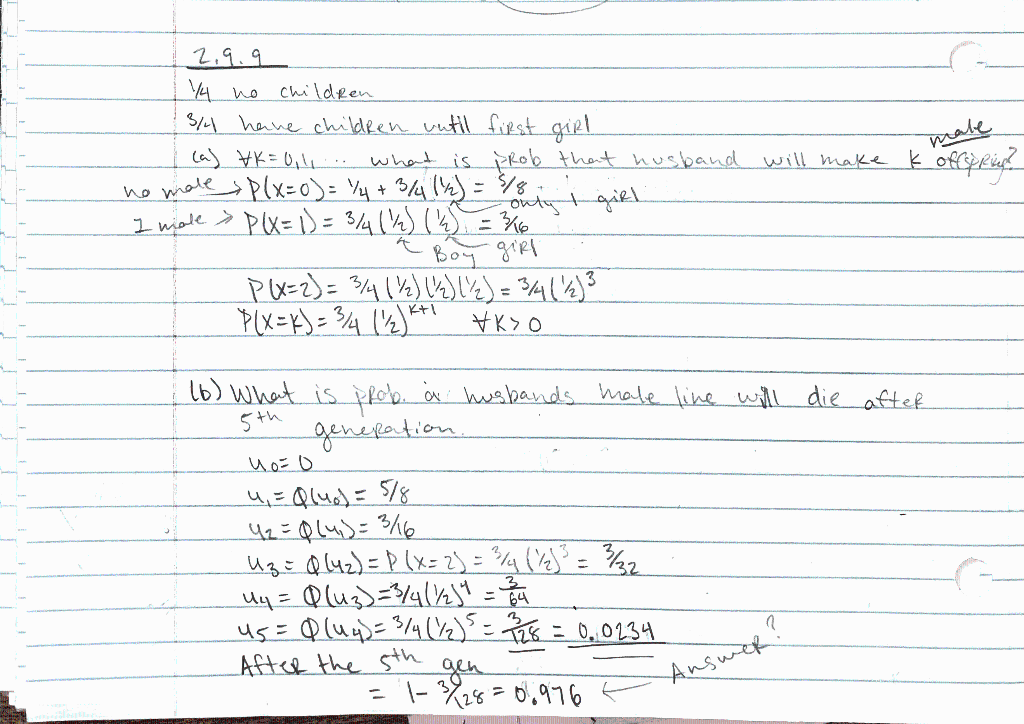 2.9.9
1/4 no children
3/4 have children until first girl
male
(a) ∀K=0,1,... what is prob that husband will make k offspring?
no male → P(X=0) = 1/4 + 3/4 (1/2) = 5/8 ← only 1 girl
1 male → P(X=1) = 3/4 (1/2) (1/2) = 3/16
Boy girl
P(X=2) = 3/4 (1/2)(1/2)(1/2) = 3/4 (1/2)^3
P(X=K) = 3/4 (1/2)^K+1 ∀K>0
(b) What is prob. a husbands male line will die after
5th generation.
u0= 0
u1 = Φ(u0) = 5/8
u2 = Φ(u1) = 3/16
u3 = Φ(u2) = P(X=2) = 3/4 (1/2)^3 = 3/32
u4 = Φ(u3) = 3/4 (1/2)^4 = 3/64
u5 = Φ(u4) = 3/4 (1/2)^5 = 3/128 = 0.0234
After the 5th gen
= 1 - 3/128 = 0.976 ← Answer?